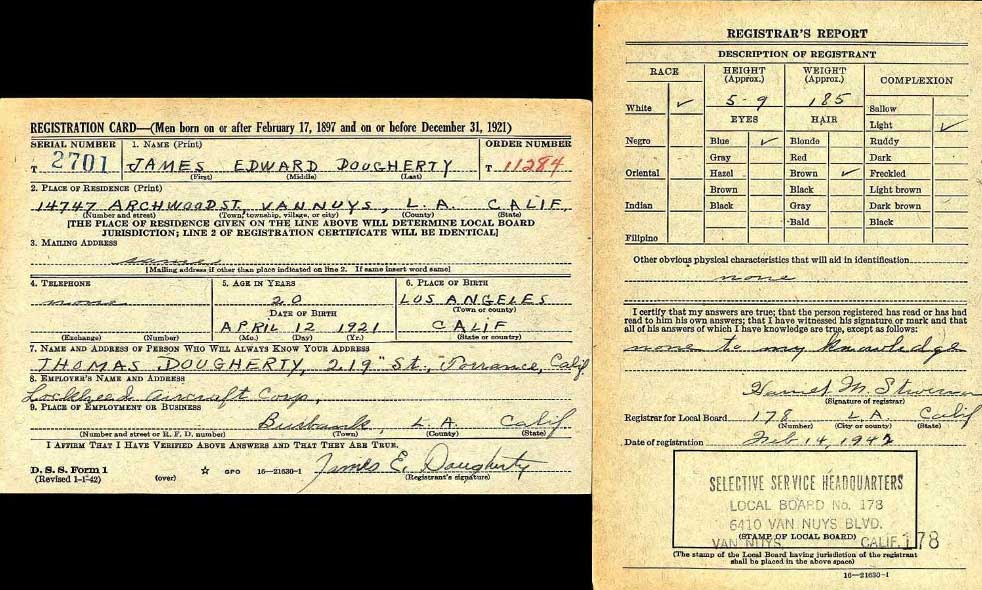 REGISTRATION CARD—(Men born on or after February 17, 1897 and on or before December 31, 1921)
SERIAL NUMBER 1. NAME (Print) ORDER NUMBER
T 2701 JAMES EDWARD DOUGHERTY T 11284
(First) (Middle) (Last)
2. PLACE OF RESIDENCE (Print)
14747 ARCHWOOD ST, VAN NUYS, L.A. CALIF,
(Number and street) (Town, township, village, or city) (County) (State)
[THE PLACE OF RESIDENCE GIVEN ON THE LINE ABOVE WILL DETERMINE LOCAL BOARD
JURISDICTION; LINE 2 OF REGISTRATION CERTIFICATE WILL BE IDENTICAL]
3. MAILING ADDRESS
same
[Mailing address if other than place indicated on line 2. If same insert word same]
4. TELEPHONE 5. AGE IN YEARS 6. PLACE OF BIRTH
none 20 LOS ANGELES
DATE OF BIRTH (Town or county)
APRIL 12 1921 CALIF
(Exchange) (Number) (Mo.) (Day) (Yr.) (State or country)
7. NAME AND ADDRESS OF PERSON WHO WILL ALWAYS KNOW YOUR ADDRESS
THOMAS DOUGHERTY, 219" St., Torrance, Calif
8. EMPLOYER'S NAME AND ADDRESS
Lockheed Aircraft Corp,
9. PLACE OF EMPLOYMENT OR BUSINESS
Burbank, L.A. Calif
(Number and street or R. F. D. number) (Town) (County) (State)
I AFFIRM THAT I HAVE VERIFIED ABOVE ANSWERS AND THAT THEY ARE TRUE.
D. S. S. Form 1 GPO 16—21630-1 James E. Dougherty
(Revised 1-1-42) (over) (Registrant's signature)
REGISTRAR'S REPORT
DESCRIPTION OF REGISTRANT
RACE HEIGHT (Approx.) WEIGHT (Approx.) COMPLEXION
White ✓ 5-9 185 Sallow
EYES HAIR Light ✓
Negro Blue ✓ Blonde Ruddy
Gray Red Dark
Oriental Hazel Brown ✓ Freckled
Brown Black Light brown
Indian Black Gray Dark brown
Bald Black
Filipino
Other obvious physical characteristics that will aid in identification
none
I certify that my answers are true; that the person registered has read or has had
read to him his own answers; that I have witnessed his signature or mark and that
all of his answers of which I have knowledge are true, except as follows:
none to my knowledge
(Signature of registrar)
Registrar for Local Board 178 L.A. Calif
(Number) (City or county) (State)
Date of registration Feb 14, 1942
SELECTIVE SERVICE HEADQUARTERS
LOCAL BOARD No. 178
6410 VAN NUYS BLVD.
(STAMP OF LOCAL BOARD)
VAN NUYS, CALIF. 178
(The stamp of the Local Board having jurisdiction of the registrant
shall be placed in the above space)
16—21630-1